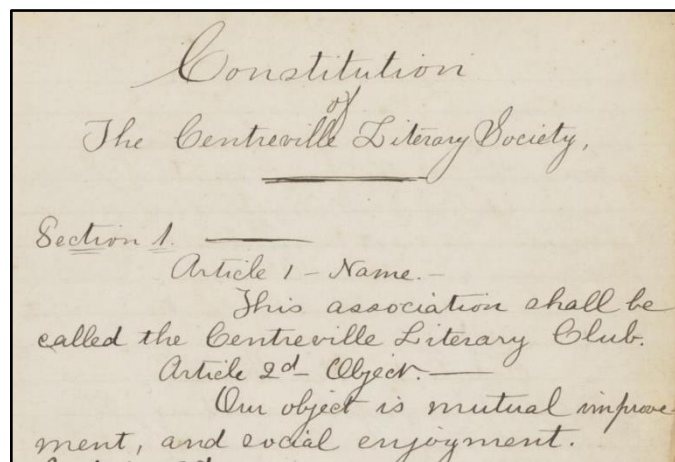 Constitution
of
The Centreville Literary Society,
Section 1. ———
Article 1 – Name. –
This association shall be
called the Centreville Literary Club.
Article 2d – Object. ——
Our object is mutual improve-
ment, and social enjoyment.